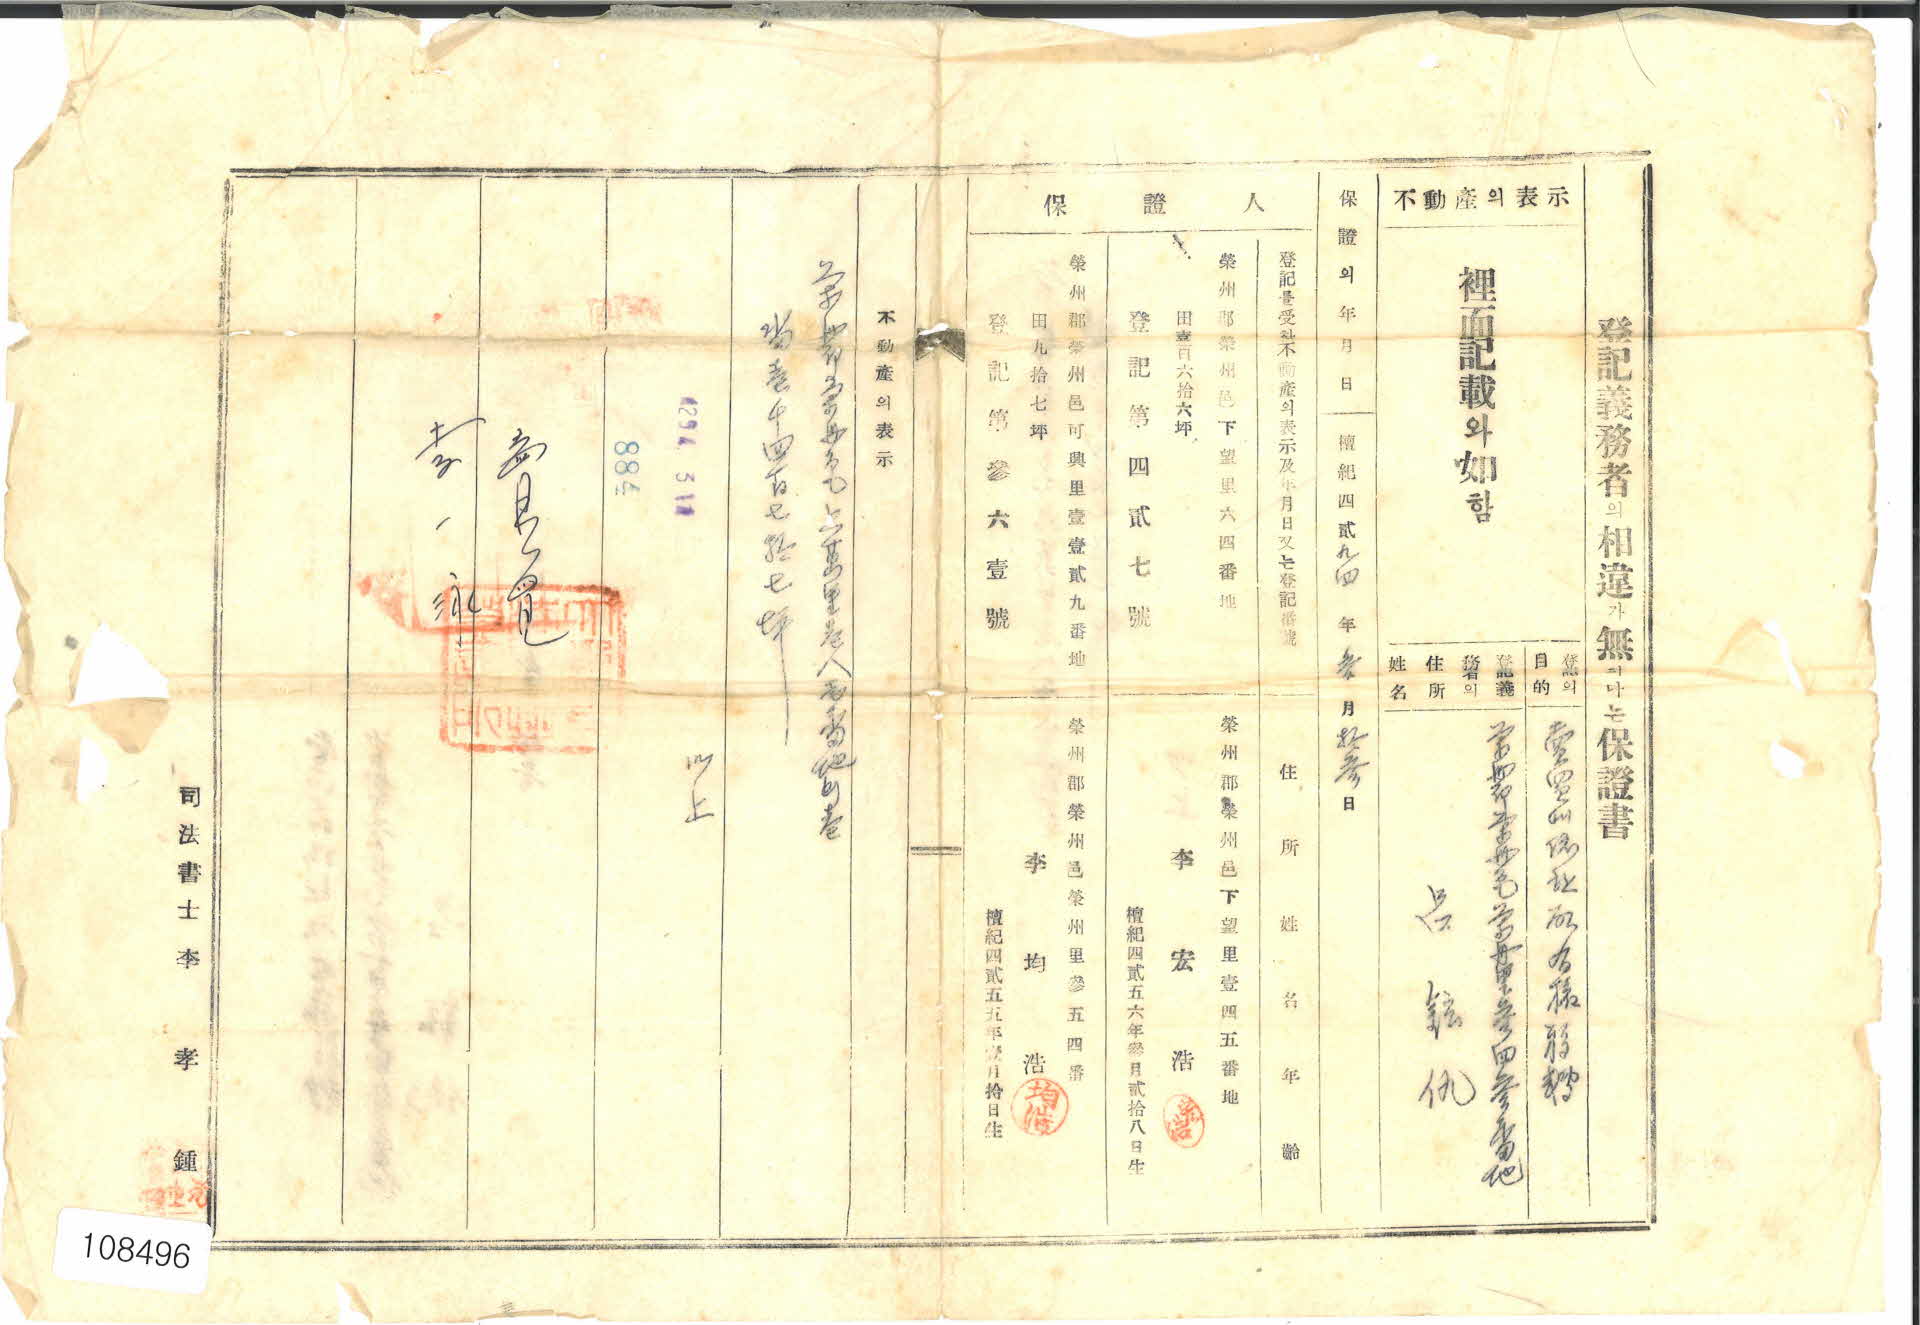 登記義務者의相違가無하다는保證書
不動產의表示
裡面記載와如함
登記의目的
賣買에因한所有權移轉
登記義務者의住所姓名
榮州郡榮州邑榮州里參四參番地
保證의年月日
檀紀四貳九四年參月拾參日
保證人
登記를受한不動產의表示及年月日又는登記番號
住所姓名年齡
榮州郡榮州邑下望里六四番地
田壹百六拾六坪
登記第四貳七號
榮州郡榮州邑下望里壹四五番地
李宏浩
檀紀四貳五六年參月貳拾八日生
榮州郡榮州邑可興里壹壹貳九番地
田九拾七坪
登記第參六壹號
榮州郡榮州邑榮州里參五四番
李均浩
均浩
檀紀四貳五五年壹月拾日生
不動產의表示
畓壹千四百七拾七坪
以上
4294.3.1
884
李一永
司法書士李孝鍾
108496